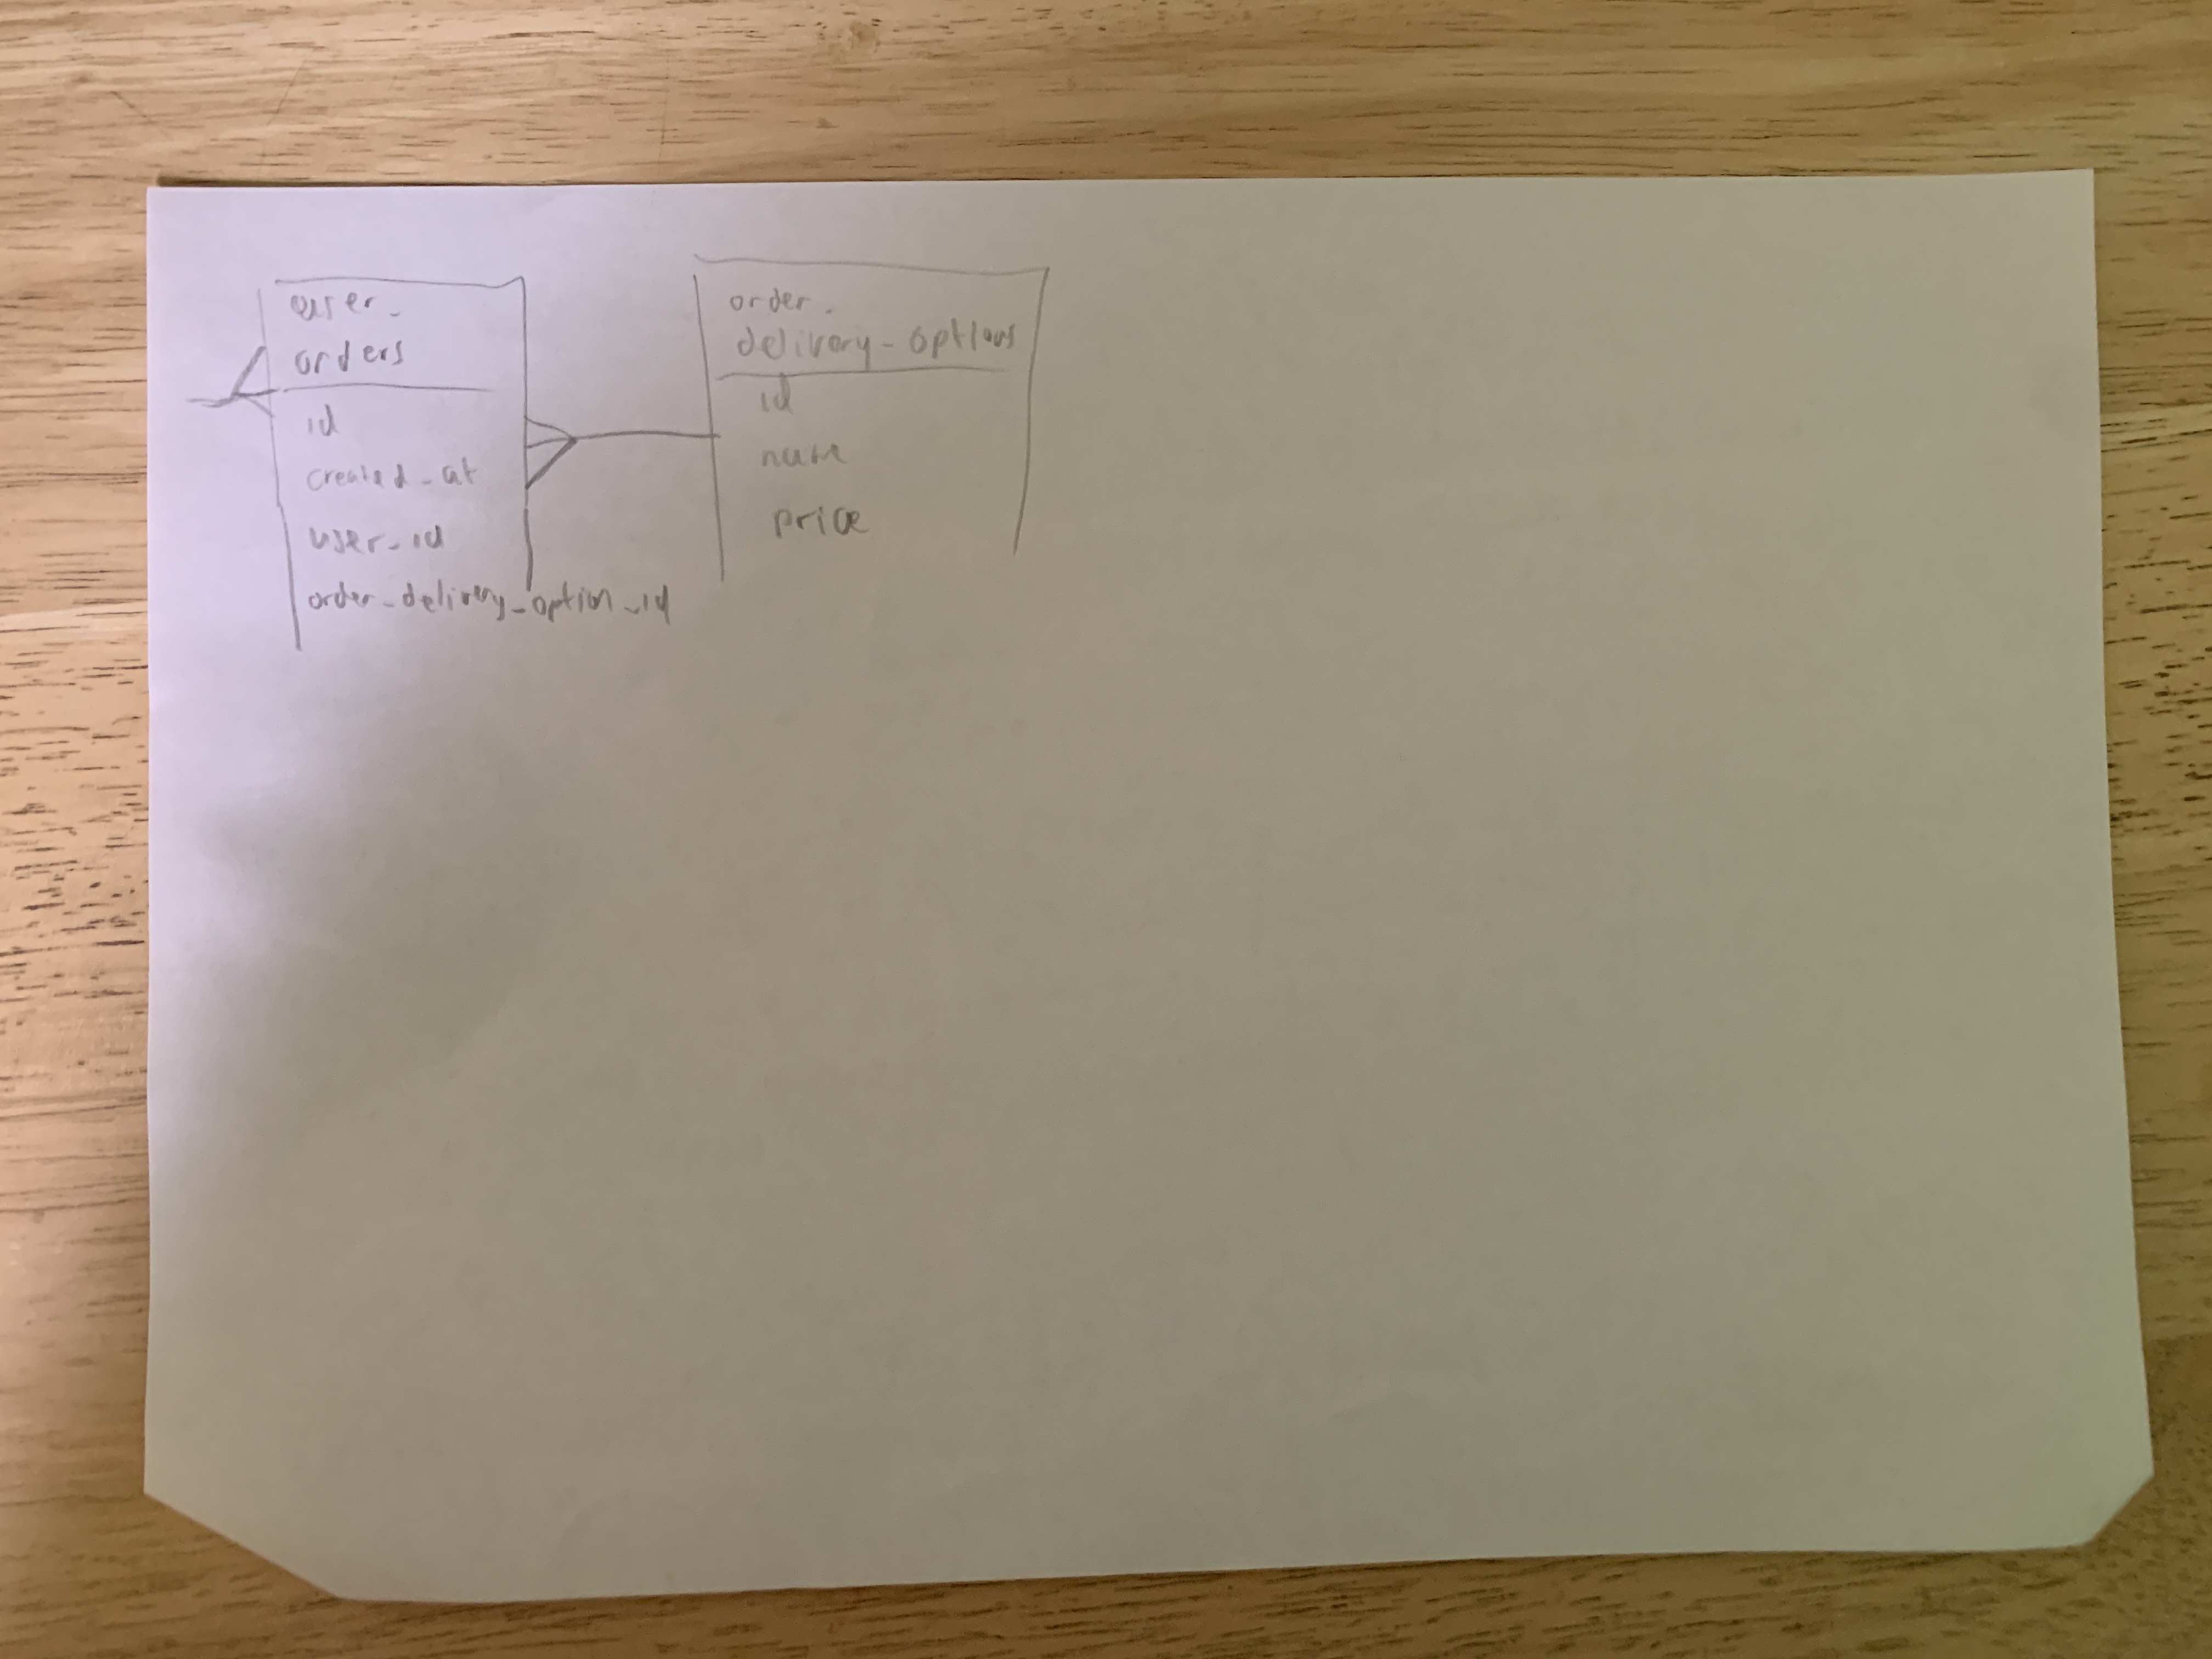 user_
orders
id
created_at
user_id
order_delivery_option_id
order_
delivery_options
id
name
price